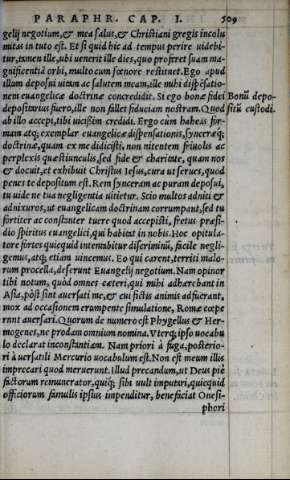 PARAPHR. CAP. I. 509
gelij negotium, & mea salus, & Christiani gregis incolu
mitas in tuto est. Et si quid hic ad tempus perire uidebi-
tur, tamen ille, ubi uenerit ille dies, quo proferet suam ma-
gnificentiã orbi, multo cum fœnore restituet. Ego apud
illum deposui uitam ac salutem meam, ille mihi dispēsatio-
nem euangelicæ doctrinæ concredidit. Si ego bonæ fidei
depositarius fuero, ille non fallet fiduciam nostram. Quod
ab illo accepi, tibi uicißim credidi. Ergo cùm habeas for-
mam atq; exemplar euangelicæ dispensationis, synceræq;
doctrinæ, quam ex me didicisti, non nitentem friuolis ac
perplexis quæstiunculis, sed fide & charitate, quam nos
& docuit, et exhibuit Christus Iesus, cura ut serues, quod
penes te depositum est. Rem synceram ac puram deposui,
tu uide ne tua negligentia uitietur. Scio multos adniti &
adnixuros, ut euangelicam doctrinam corrumpant, sed tu
fortiter ac constanter tuere quod accepisti, fretus præsi-
dio spiritus euangelici, qui habitat in nobis. Hoc opitula-
tore fortes quicquid intenditur discriminis, facile negli-
gemus, atq; etiam uincemus. Eo qui carent, territi malo-
rum procella, deserunt Euangelij negotium. Nam opinor
tibi notum, quòd omnes cæteri, qui mihi adhærebant in
Asia, pòst sint auersati me, & cui fictis animis adfuerant,
mox ad occasionem erumpente simulatione, Romæ cœpe
runt auersari. Quorum de numero est Phygellus & Her-
mogenes, ne prodam omnium nomina. Vterq; ipso uocabu
lo declarat inconstantiam. Nam priori à fuga, posterio-
ri à uersatili Mercurio uocabulum est. Non est meum illis
imprecari quod meruerunt. Illud precandum, ut Deus piè
factorum remunerator, quiq; sibi uult imputari, quicquid
officiorum famulis ipsius impenditur, beneficiat Onesi-
phori
Bonũ depo-
sitũ custodi.